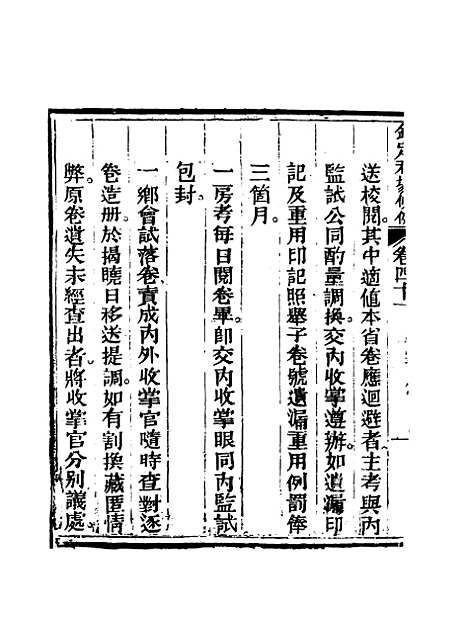 欽定科場條例 卷四十一
送校閱其中適值本省卷應迴避者主考與內
監試公同酌量調換交內收掌遵辦如遺漏印
記及重用印記照舉子卷號遺漏重用例罰俸
三箇月
一房考每日閱卷畢卽交內收掌眼同內監試
包封
一鄉會試落卷責成內外收掌官隨時查對逐
卷造册於揭曉日移送提調如有割換藏匿情
弊原卷遺失未經查出者將收掌官分別議處